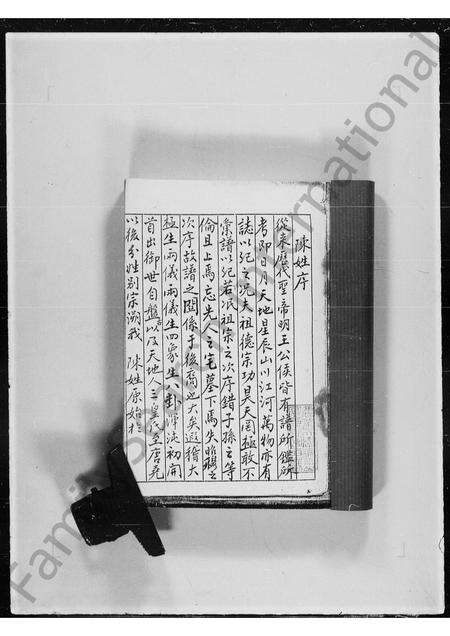 陳姓序
從來歷代聖帝明王公侯皆有譜所鑑所
考即日月天地星辰山川江河萬物亦有
誌以紀之况夫祖德宗功昊天罔極敢不
彙譜以紀若泯祖宗之次序錯子孫之等
倫且上馬忘先人之宅墓下馬失昭穆之
次序故譜之關係于後裔也大矣遡稽太
極生兩儀兩儀生四象生八卦淳沌初開
首出御世自盤古以及天地人三皇至唐堯
以後分姓別宗溯我 陳姓原始於
Family Search International